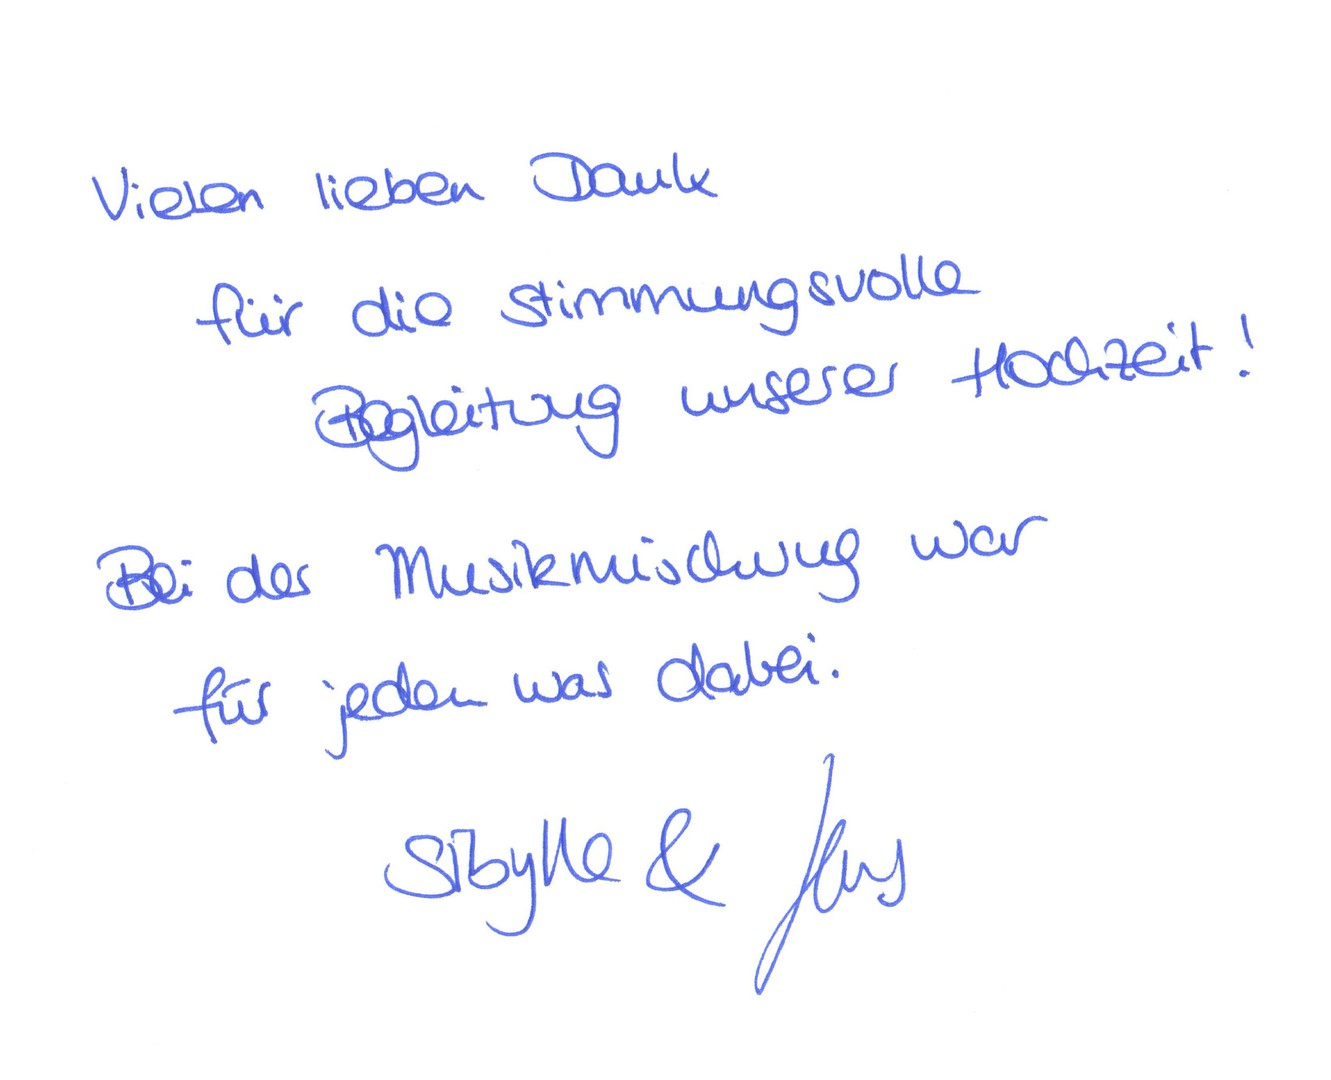 Vielen lieben Dank
für die stimmungsvolle
Begleitung unserer Hochzeit!
Bei der Musikmischung war
für jeden was dabei.
Sibylle & Jens